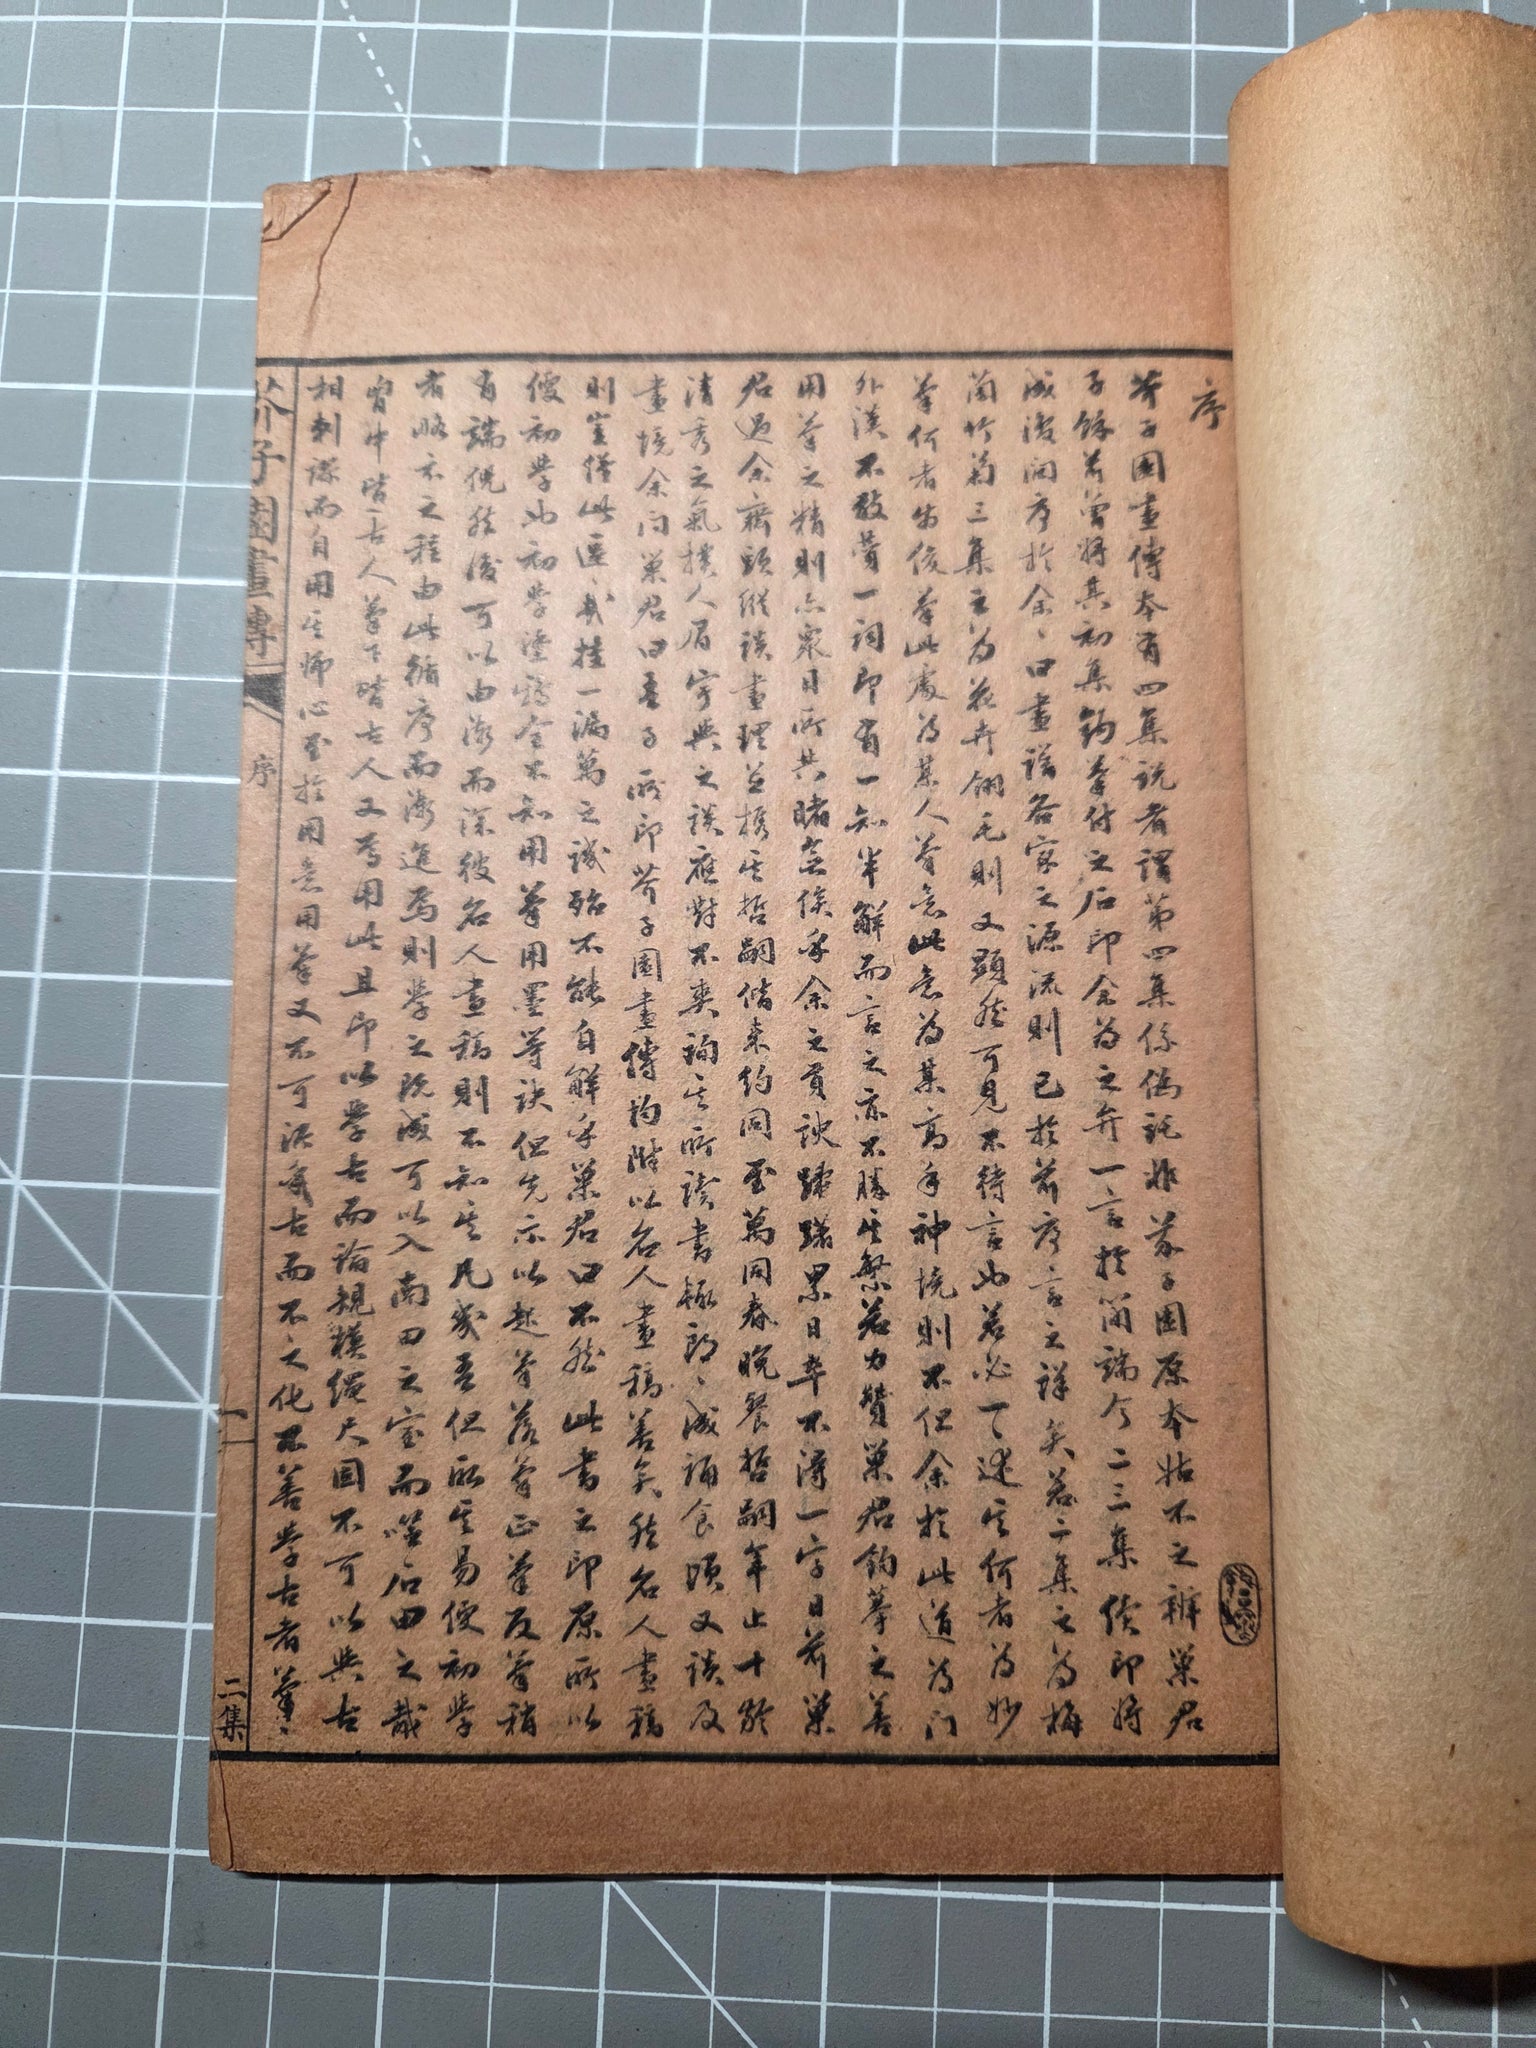 序
芥子園畫傳本有四集說者謂第四集係偽託非芥子園原本姑不之辨巢君
子餘前曾將其初集鈎摹付之石印余為之弁一言於簡端今二三集續印將
成復問序於余、曰畫譜各家之源流則已於前序言之詳矣若二集之為梅
蘭竹菊三集之為花卉翎毛則又顯然可見不待言也若必一一述其何者為妙
筆何者為俊筆此處為某人筆意此意為某高手神境則不但余於此道為門
外漢不敢贊一詞即有一知半解而言之亦不勝其繁若力贊巢君鈎摹之善
用筆之精則亦眾目所共睹無俟乎余之貢諛躊躇累日卒不得一字日前巢
君過余齋頭縱談畫理並携其哲嗣偕來約同至萬同春晚餐哲嗣年止十餘
清秀之氣撲人眉宇與之談應對不爽詢其所讀書輒朗、成誦食頃又談及
畫境余問巢君曰吾子所印芥子園畫傳均階以名人畫稿善矣然名人畫稿
則豈僅此區、哉挂一漏萬之譏殆不能自解乎巢君曰不然此書之印原所以
便初學也初學塗鴉全不知用筆用墨等訣但先示以起筆落筆正筆反筆稍
有端倪然後可以由漸而深彼名人畫稿則不知其凡幾吾但取其易便初學
者略示之程由此循序而漸進焉則學之既成可以入南田之室而嚌石田之胾
胷中皆古人筆下皆古人又焉用此且即以學古而論規模繩尺固不可以與古
相刺謬而自用其師心至於用意用筆又不可泥乎古而不之化不善學古者筆、
芥子園畫傳
序
一
二集